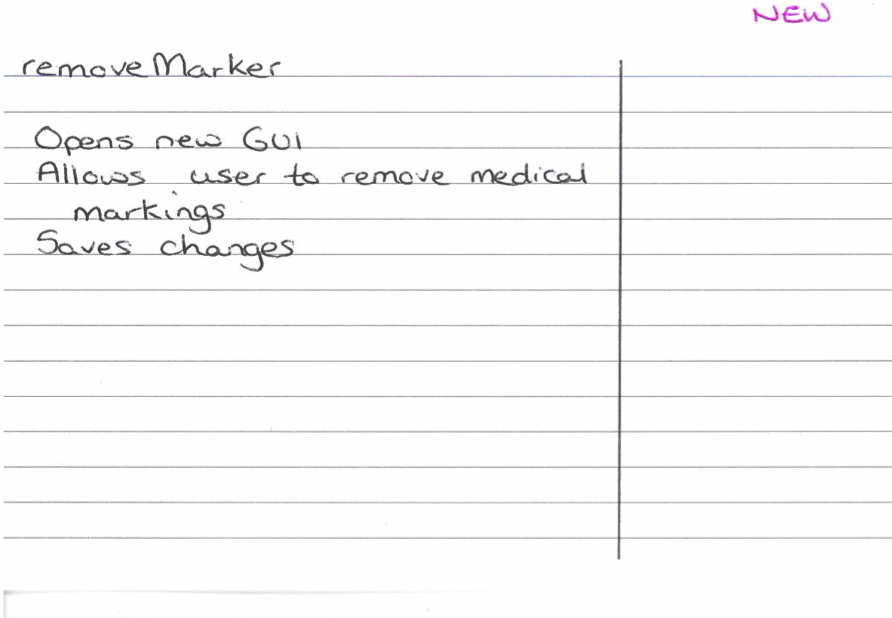 NEW
removeMarker
Opens new GUI
Allows user to remove medical
markings
Saves changes